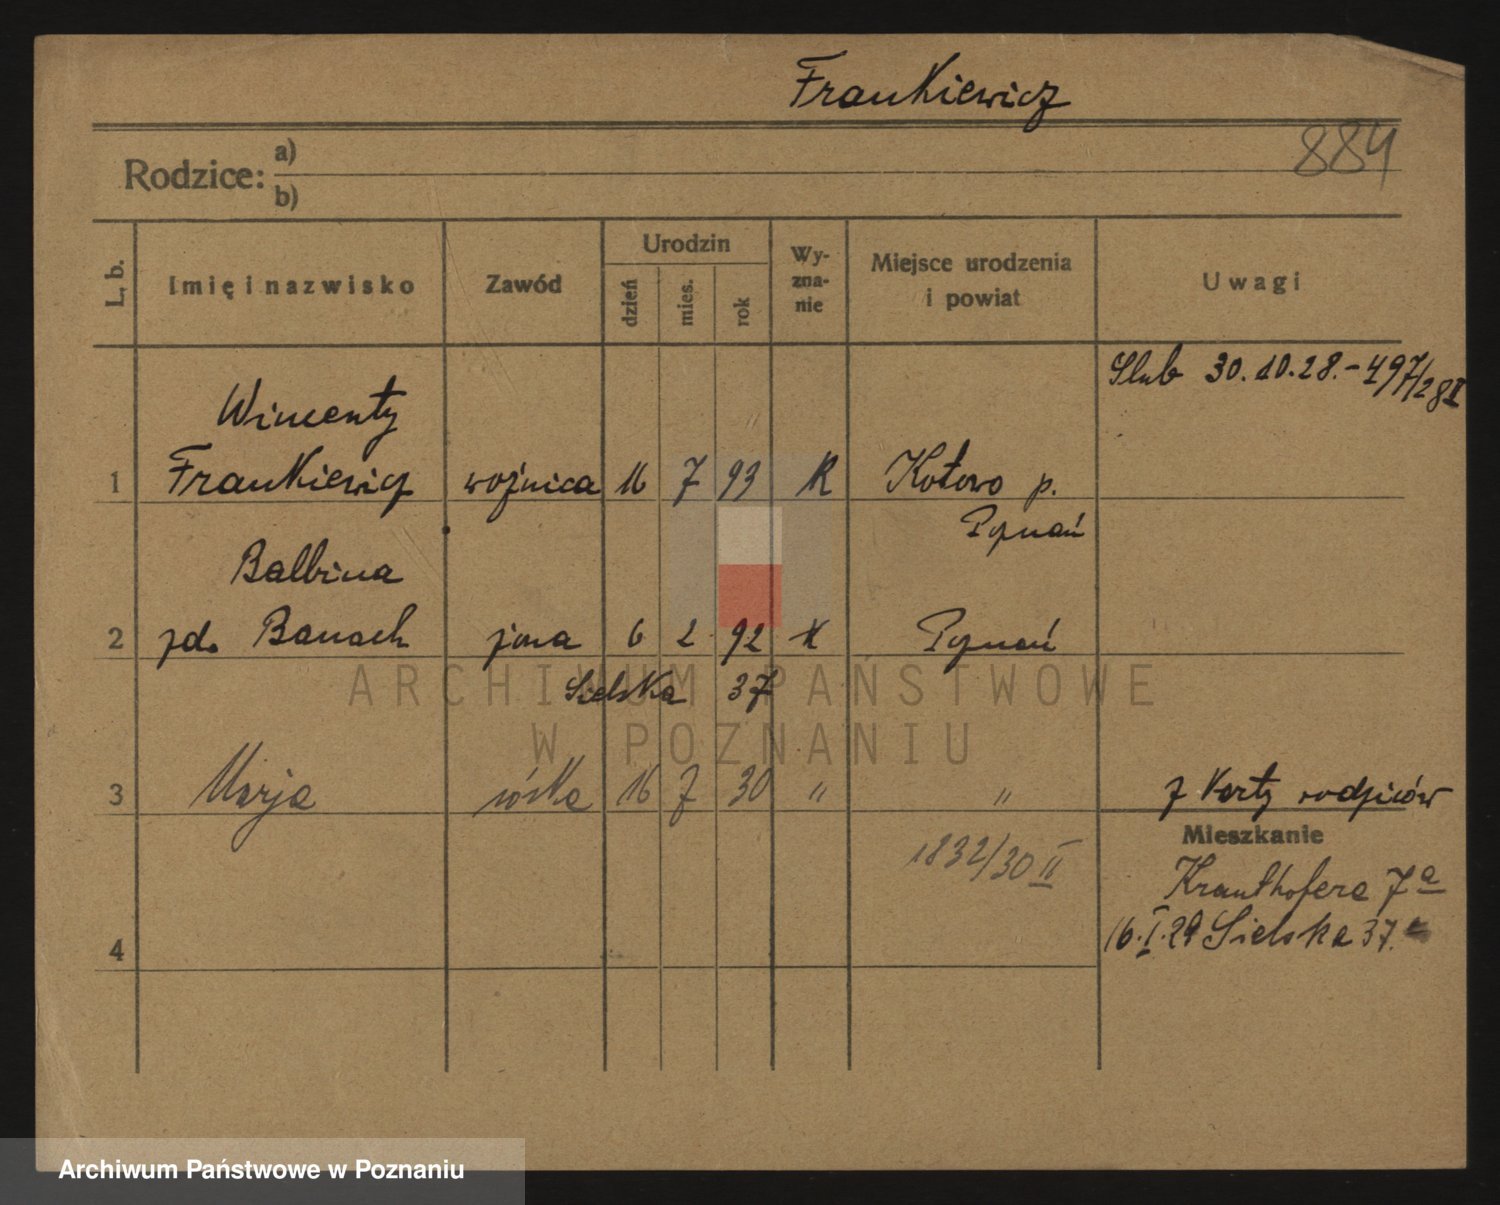 Frankiewicz
884
Rodzice: a)
b)
L. b.
Imię i nazwisko
Zawód
Urodzin
dzień
mies.
rok
Wy-
zna-
nie
Miejsce urodzenia
i powiat
Uwagi
Slub 30.10.28.-497/28 II
Wincenty
1 Frankiewicz woźnica 16 7 93 K Kotowo p.
Poznań
Balbina
2 zd. Banach żona 6 2 92 K Poznań
Sielska 37
3 Marja córka 16 7 30 " " z karty rodziców
Mieszkanie
1832/30 II
Krauthofera 7a
16.I.29 Sielska 37.
4
ARCHIWUM PAŃSTWOWE
W POZNANIU
Archiwum Państwowe w Poznaniu